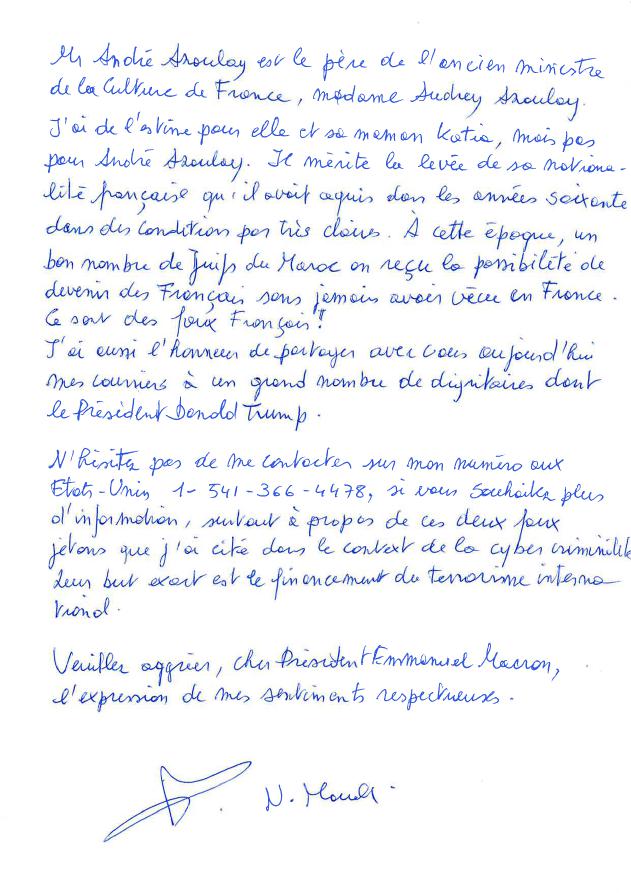 Mr André Azoulay est le père de l'ancien ministre
de la Culture de France, madame Audrey Azoulay.
J'ai de l'estime pour elle et sa maman Katia, mais pas
pour André Azoulay. Il mérite la levée de sa nationa-
lité française qu'il avait aquis dans les années soixante
dans des conditions pas très claires. À cette époque, un
bon nombre de Juifs du Maroc on reçu la possibilité de
devenir des Français sans jamais avoir vécu en France.
Ce sont des faux Français!
J'ai aussi l'honneur de partager avec vous aujourd'hui
mes courriers à un grand nombre de dignitaires dont
le Président Donald Trump.
N'hésitez pas de me contacter sur mon numéro aux
Etats-Unis 1-541-366-4478, si vous souhaitez plus
d'information, surtout à propos de ces deux faux
jetons que j'ai cité dans le context de la cyber criminilité
Leur but exact est le financement du terrorisme interna
tional.
Veuillez aggréer, cher Président Emmanuel Macron,
l'expression de mes sentiments respectueuses.
N.